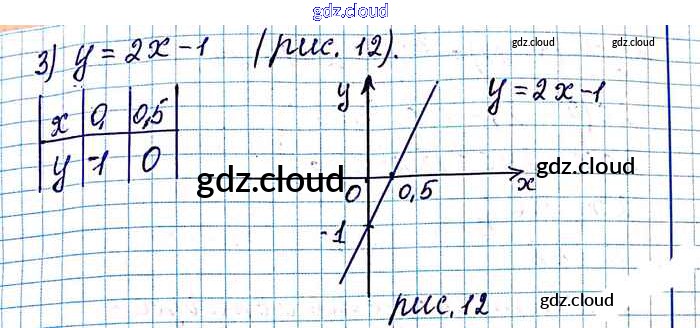 gdz.cloud
3) y = 2x - 1 (рис. 12).
gdz.cloud gdz.cloud
y y = 2x - 1
x 0, 0,5
y -1 0
gdz.cloud 0 0,5 x gdz.cloud
-1
рис. 12 gdz.cloud